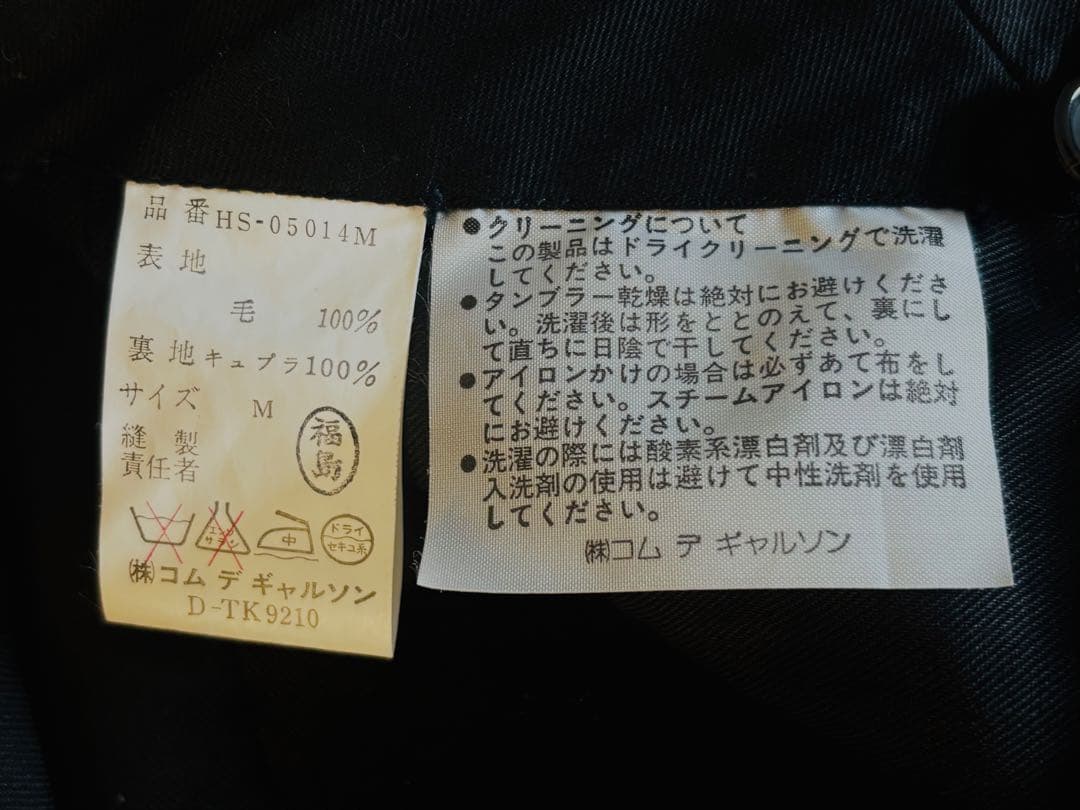 品番 HS-05014M
表地
毛 100%
裏地 キュプラ100%
サイズ M
縫製
責任者
福島
エンソ
サラシ
中
ドライ
セキユ系
㈱コム デ ギャルソン
D-TK9210
●クリーニングについて
この製品はドライクリーニングで洗濯
してください。
●タンブラー乾燥は絶対にお避けくださ
い。洗濯後は形をととのえて、裏にし
て直ちに日陰で干してください。
●アイロンかけの場合は必ずあて布をし
てください。スチームアイロンは絶対
にお避けください。
●洗濯の際には酸素系漂白剤及び漂白剤
入洗剤の使用は避けて中性洗剤を使用
してください。
㈱コム デ ギャルソン